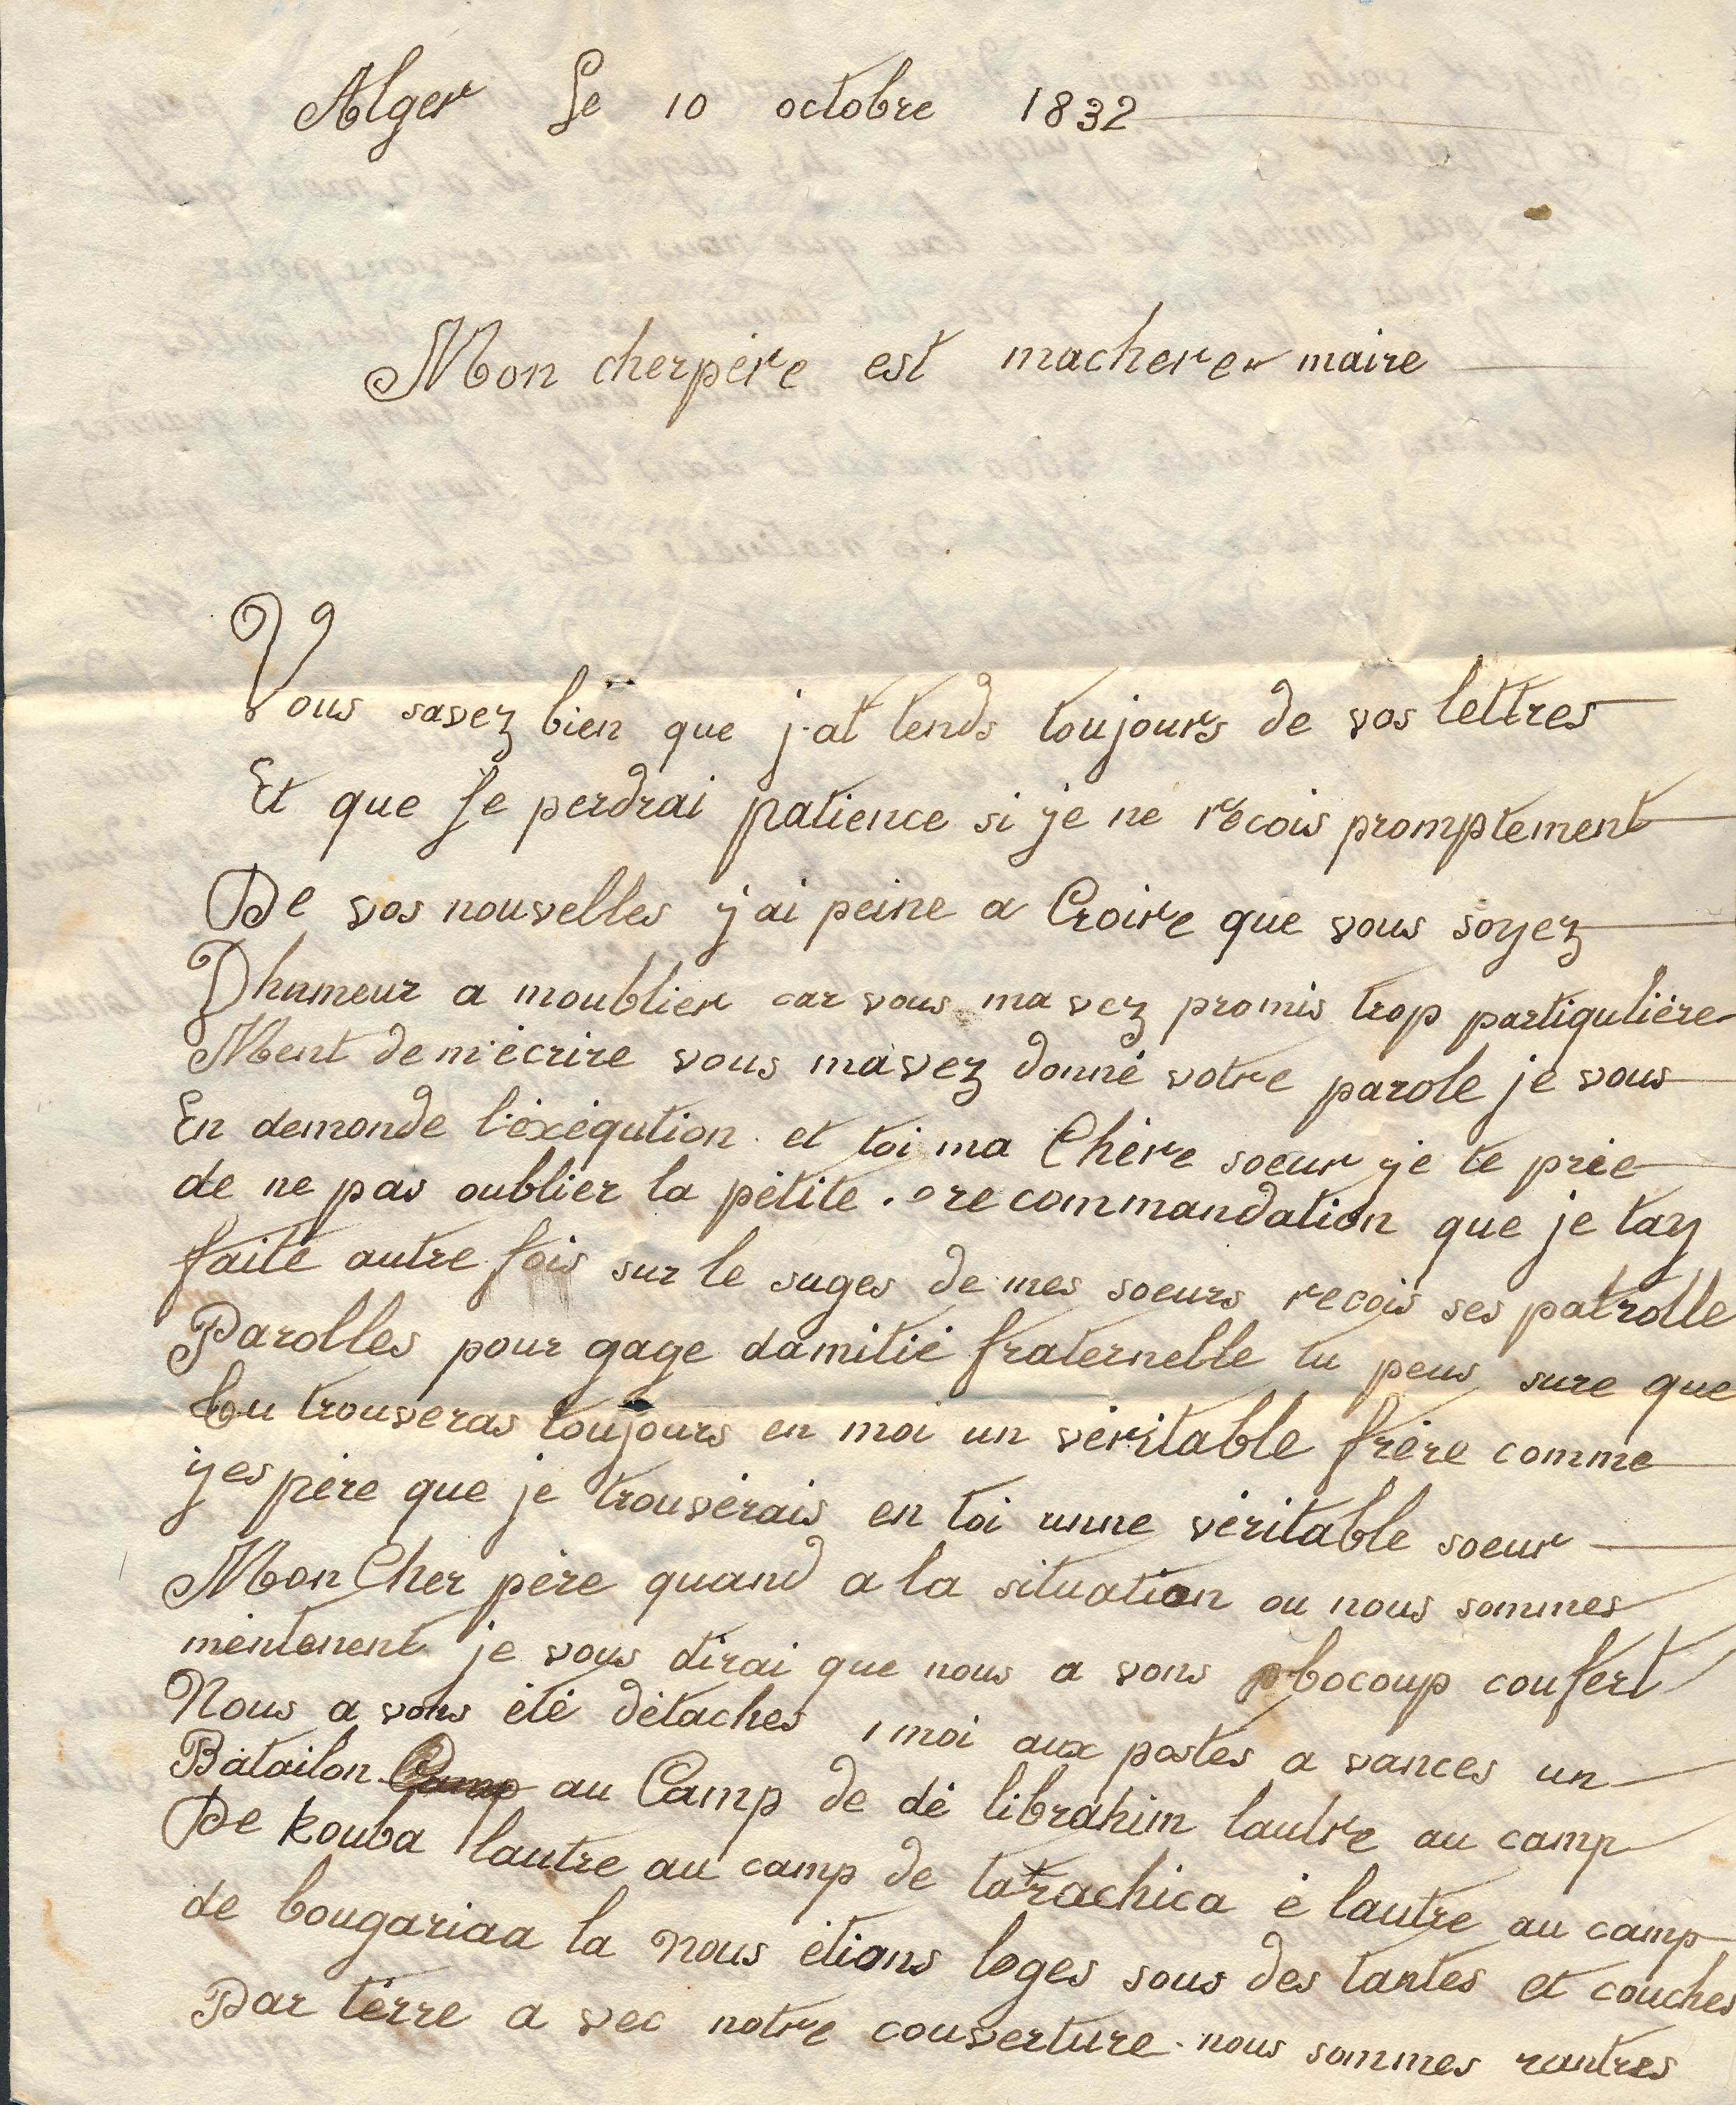 Alger Le 10 octobre 1832
Mon cherpére est macherer maire
Vous savez bien que j'at tends toujours de vos lettres
Et que Je perdrai patience si je ne recois promptement
De vos nouvelles j'ai peine a Croire que vous soyez
Dhumeur a moublier car vous ma vez promis trop partigulière
Ment de m'écrire vous mavez donné votre parole je vous
En demonde l'éxéqution et toi ma Chère soeur je te prie
de ne pas oublier la petite recommandation que je tay
faite autre fois sur le suges de mes soeurs recois ses patrolle
Parolles pour gage damitié fraternelle tu peus sure que
tu trouveras toujours en moi un véritable frère comme
jes père que je trouverais en toi unne véritable soeur
Mon Cher père quand a la situation ou nous sommes
mentenent je vous dirai que nous a vons bocoup coufert
Nous a vons été détaches 1 moi aux postes a vances un
Batailon Camp au Camp de dé librahim lautre au camp
De kouba lautre au camp de tatrachica é lautre au camp
de bougariaa la nous étions loges sous des tantes et couches
Par terre a vec notre couverture nous sommes rantres